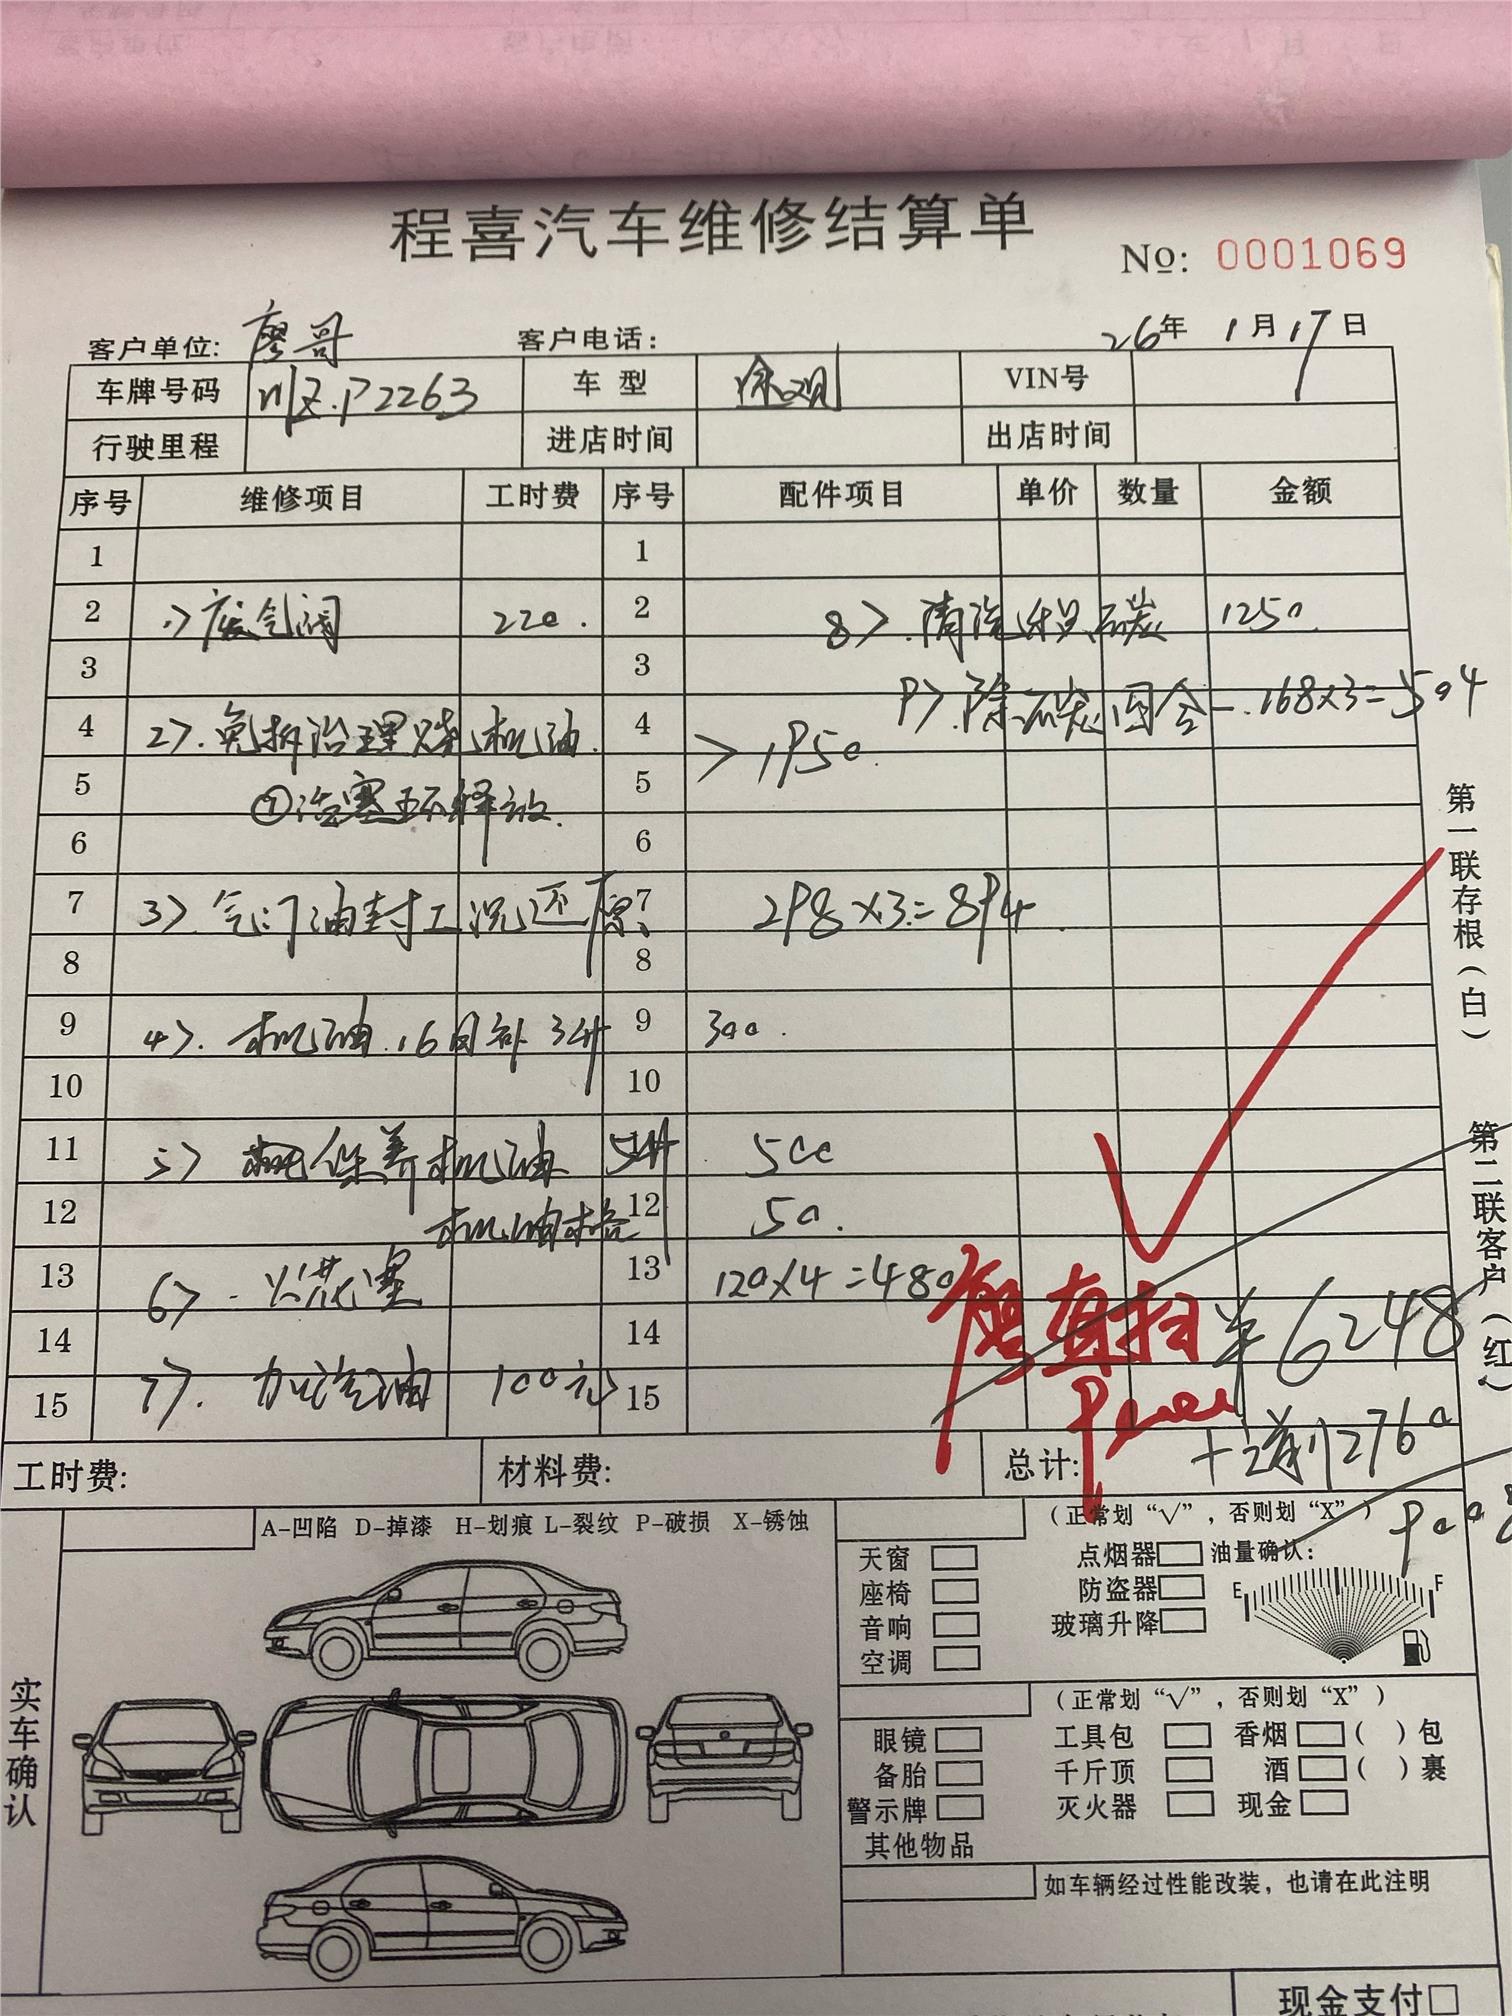 程喜汽车维修结算单
No: 0001069
客户单位: 廖哥 客户电话: 26年 1月17日
车牌号码 川Z.P2263 车型 途观 VIN号
行驶里程 进店时间 出店时间
序号 维修项目 工时费 序号 配件项目 单价 数量 金额
1 1
2 1> 废气阀 220. 2 8>. 清洗积碳 1250.
3 3
9> 除碳闭合 168x3=504
4 2>. 免拆治理烧机油. 4 > 1950.
5 ①活塞环释放. 5
6 6
7 3>. 气门油封工况还原、 7 298x3=894.
8 8
9 4>. 机油.16日补3升 9 300.
10 10
11 5> 保养机油 5升 11 500
12 机油格 12 50.
13 6>. 火花塞 13 120x4=480
14 14
廖直扫 ¥6248
15 7>. 加汽油 100元 15
9000
工时费: 材料费: 总计: +之前2760
9008
第一联存根(白) 第二联客户(红)
实车确认
A-凹陷 D-掉漆 H-划痕 L-裂纹 P-破损 X-锈蚀
(正常划“√”,否则划“X”)
天窗 点烟器 油量确认:
座椅 防盗器 E F
音响 玻璃升降
空调
(正常划“√”,否则划“X”)
眼镜 工具包 香烟 ( )包
备胎 千斤顶 酒 ( )裹
警示牌 灭火器 现金
其他物品
如车辆经过性能改装,也请在此注明
现金支付